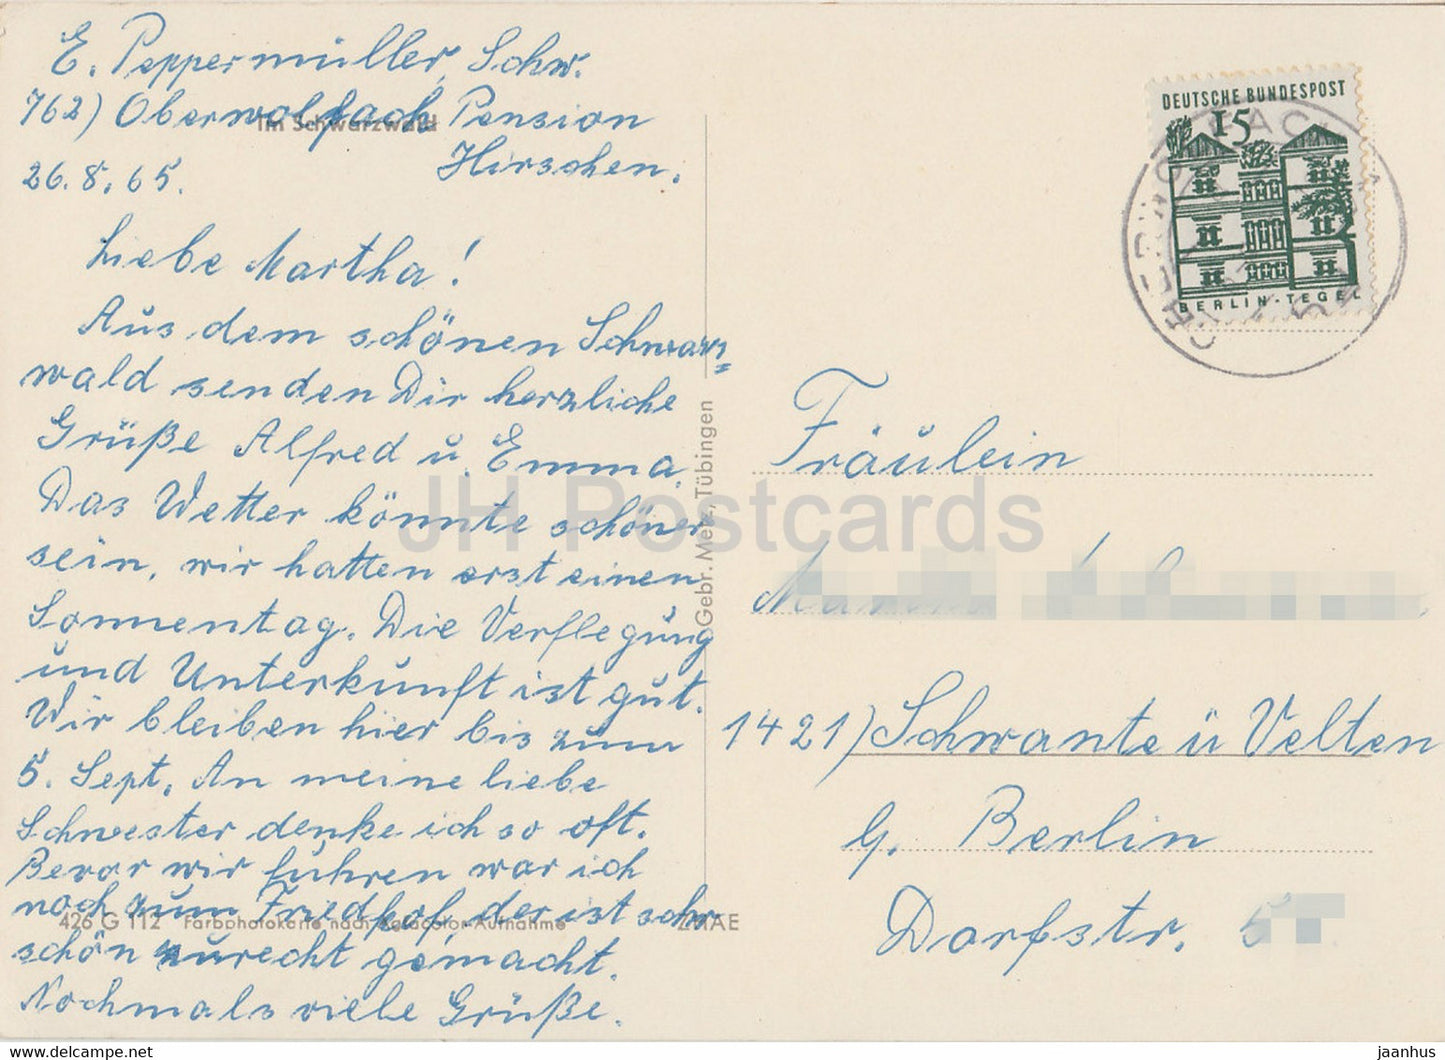 E. Peppermüller, Schw.
762) Oberwolfach Pension
Im Schwarzwald
Hirschen.
26.8.65.
Liebe Martha!
Aus dem schönen Schwarz=
wald senden Dir herzliche
Grüße Alfred u. Emma.
Das Wetter könnte schöner
sein, wir hatten erst einen
Sonnentag. Die Verflegung
und Unterkunft ist gut.
Wir bleiben hier bis zum
5. Sept. An meine liebe
Schwester denke ich so oft.
Bevor wir fuhren war ich
noch zum Friedhof, der ist sehr
schön zurecht gemacht.
Nochmals viele Grüße.
426 G 112 Farbphotokarte nach Agfacolor-Aufnahme
Gebr. Metz, Tübingen
DEUTSCHE BUNDESPOST
15
BERLIN-TEGEL
Fräulein
1421) Schwante ü Velten
b. Berlin
Dorfstr.
JH Postcards
jaanhus
www.hippostcard.com